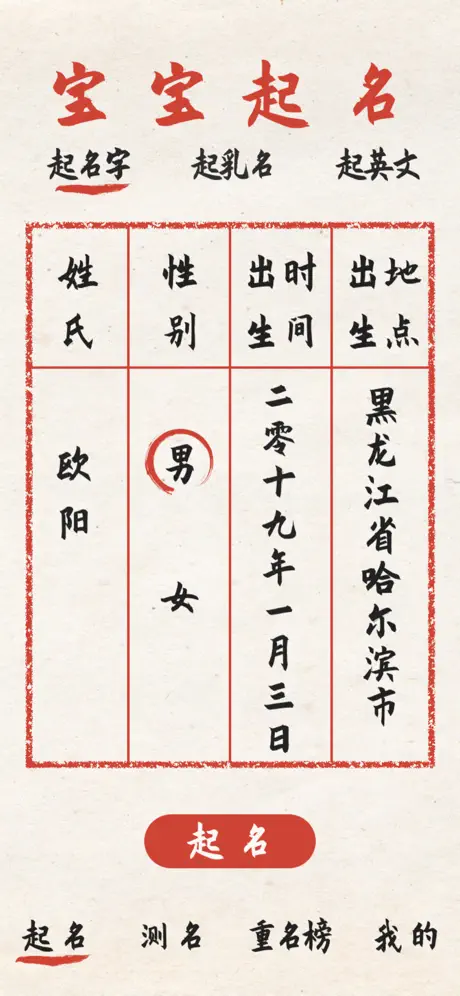 宝宝起名
起名字 起乳名 起英文
姓氏 性别 出生时间 出生地点
欧阳
男
女
二零十九年一月三日
黑龙江省哈尔滨市
起名
起名 测名 重名榜 我的